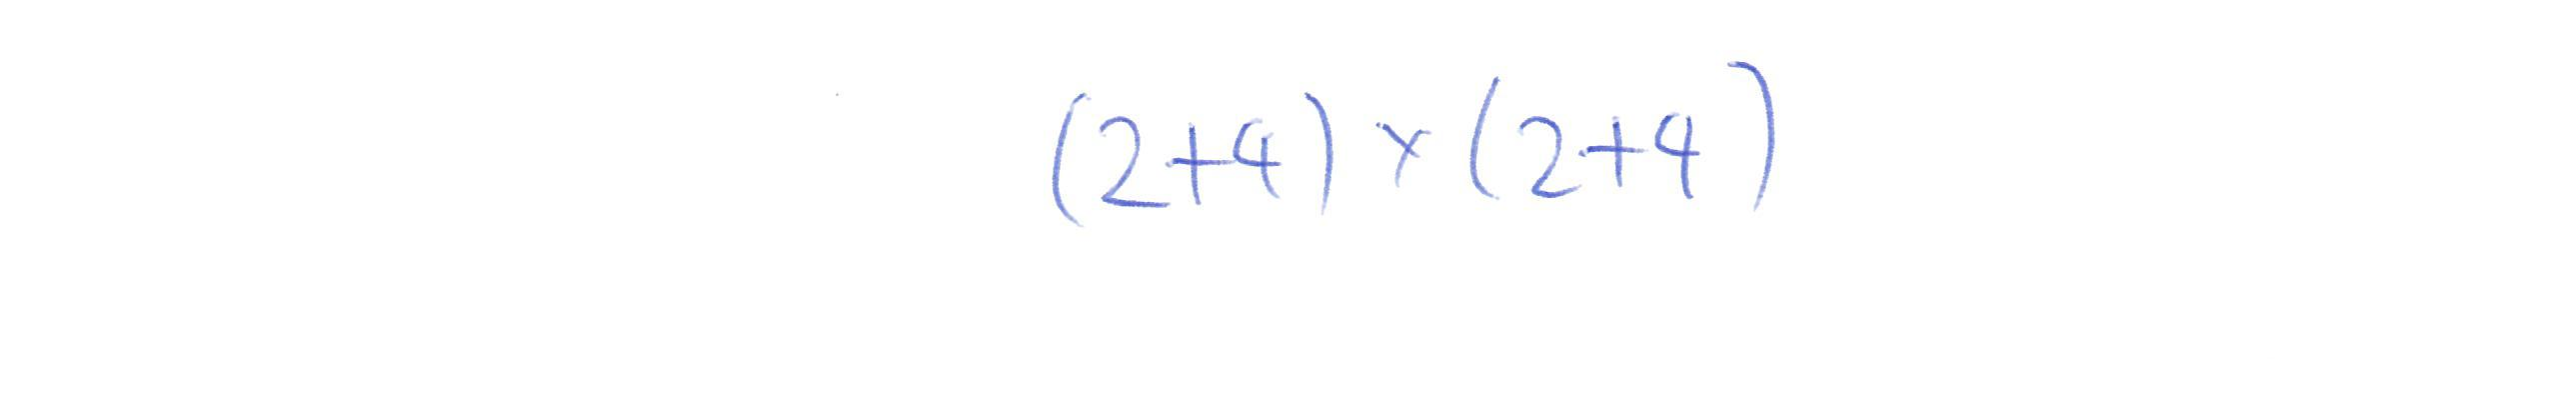 (2+4) × (2+4)